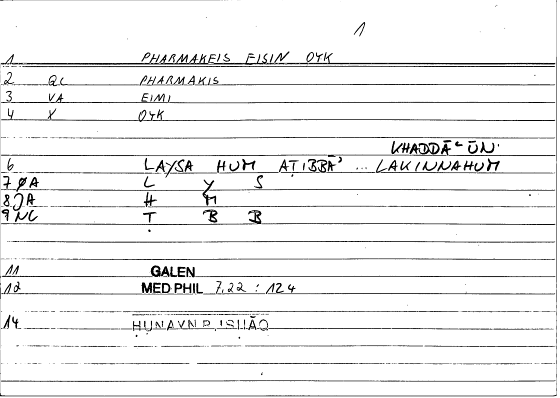 1
1 PHARMAKEIS EISIN OYK
2 QC PHARMAKIS
3 VA EIMI
4 X OYK
KHADDĀʿŪN
6 LAYSA HUM AṬIBBĀʾ ... LAKINNAHUM
7 ØA L Y S
8 JA H M
9 NC Ṭ B B
11 GALEN
12 MED PHIL 7,22 : 124
14 ḤUNAYN B. ISḤĀQ